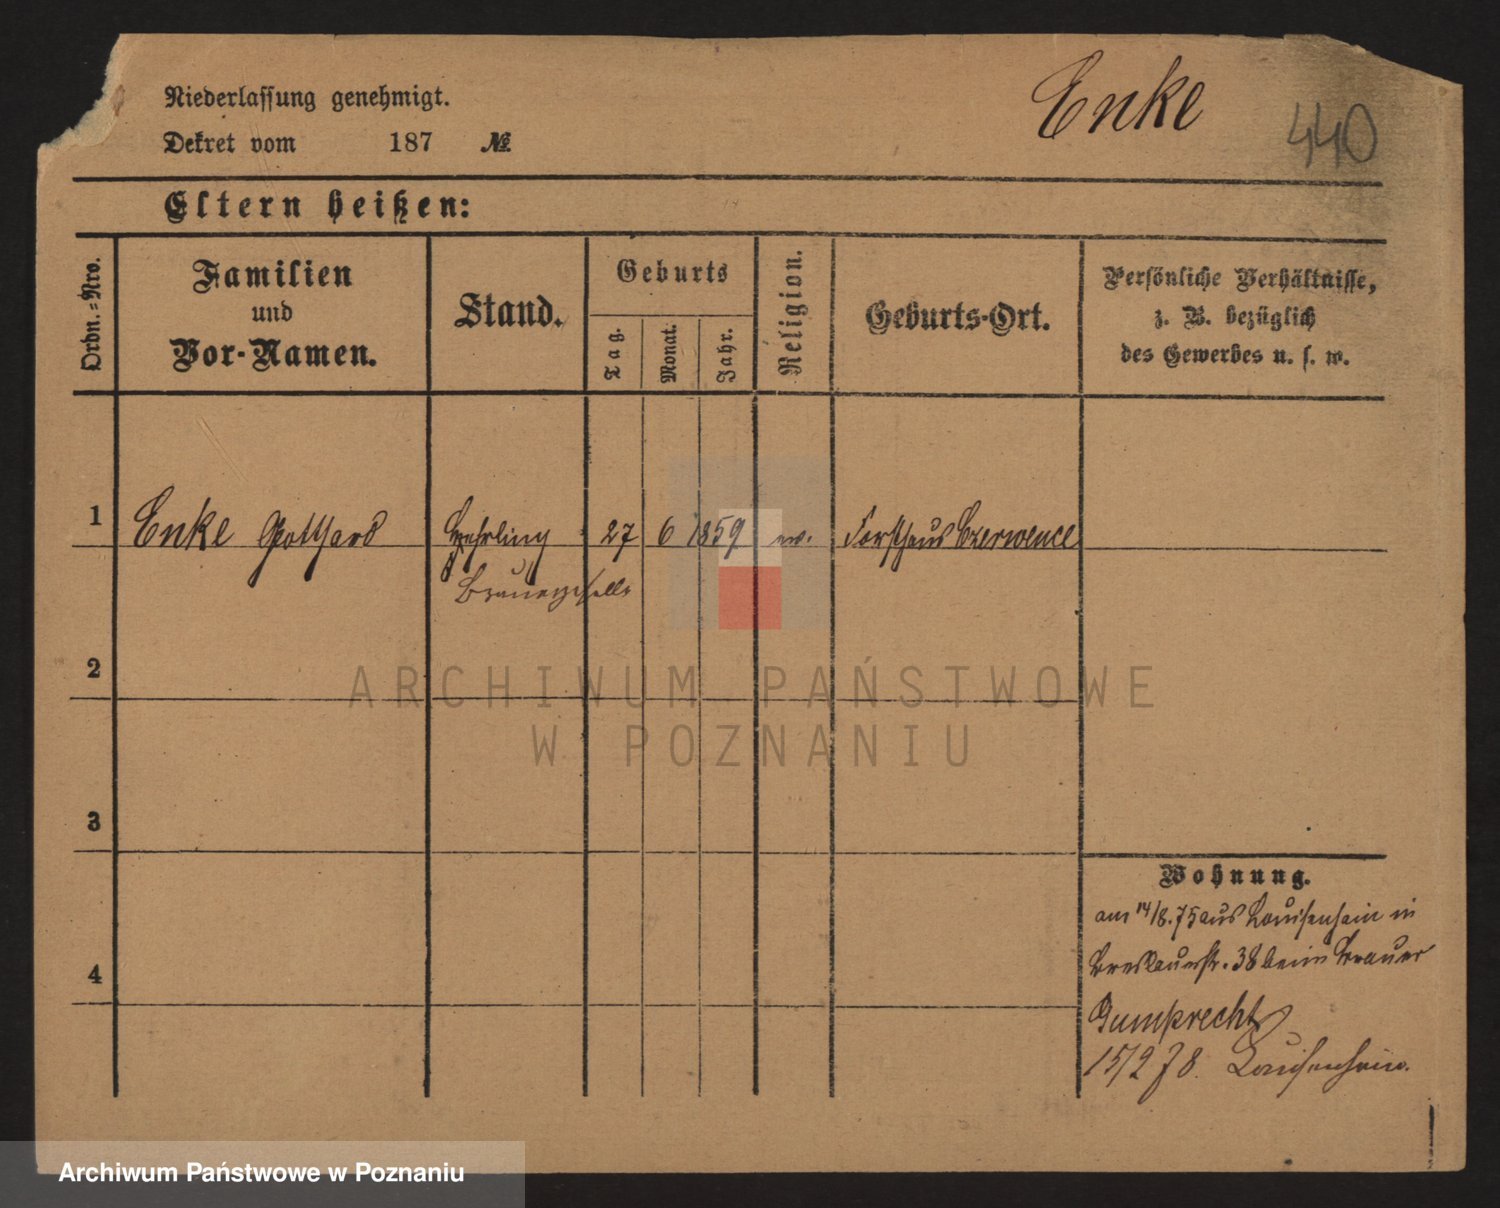 Niederlassung genehmigt.
Enke
440
Dekret vom 187 №
Eltern heißen:
Ordn.-Nro.
Familien
und
Vor-Namen.
Stand.
Geburts
Tag.
Monat.
Jahr.
Religion.
Geburts-Ort.
Persönliche Verhältnisse,
z. B. bezüglich
des Gewerbes u. s. w.
1 Enke Gotthard Lehrling 27 6 1859 ev. Forsthaus Czerwence
Brauergeselle
2
ARCHIWUM PAŃSTWOWE
W POZNANIU
3
Wohnung.
am 14/8.75 aus Louisenhain in
Breslauerstr. 38 beim Brauer
4
Gumprecht
15/2 78. Louisenhain.
Archiwum Państwowe w Poznaniu